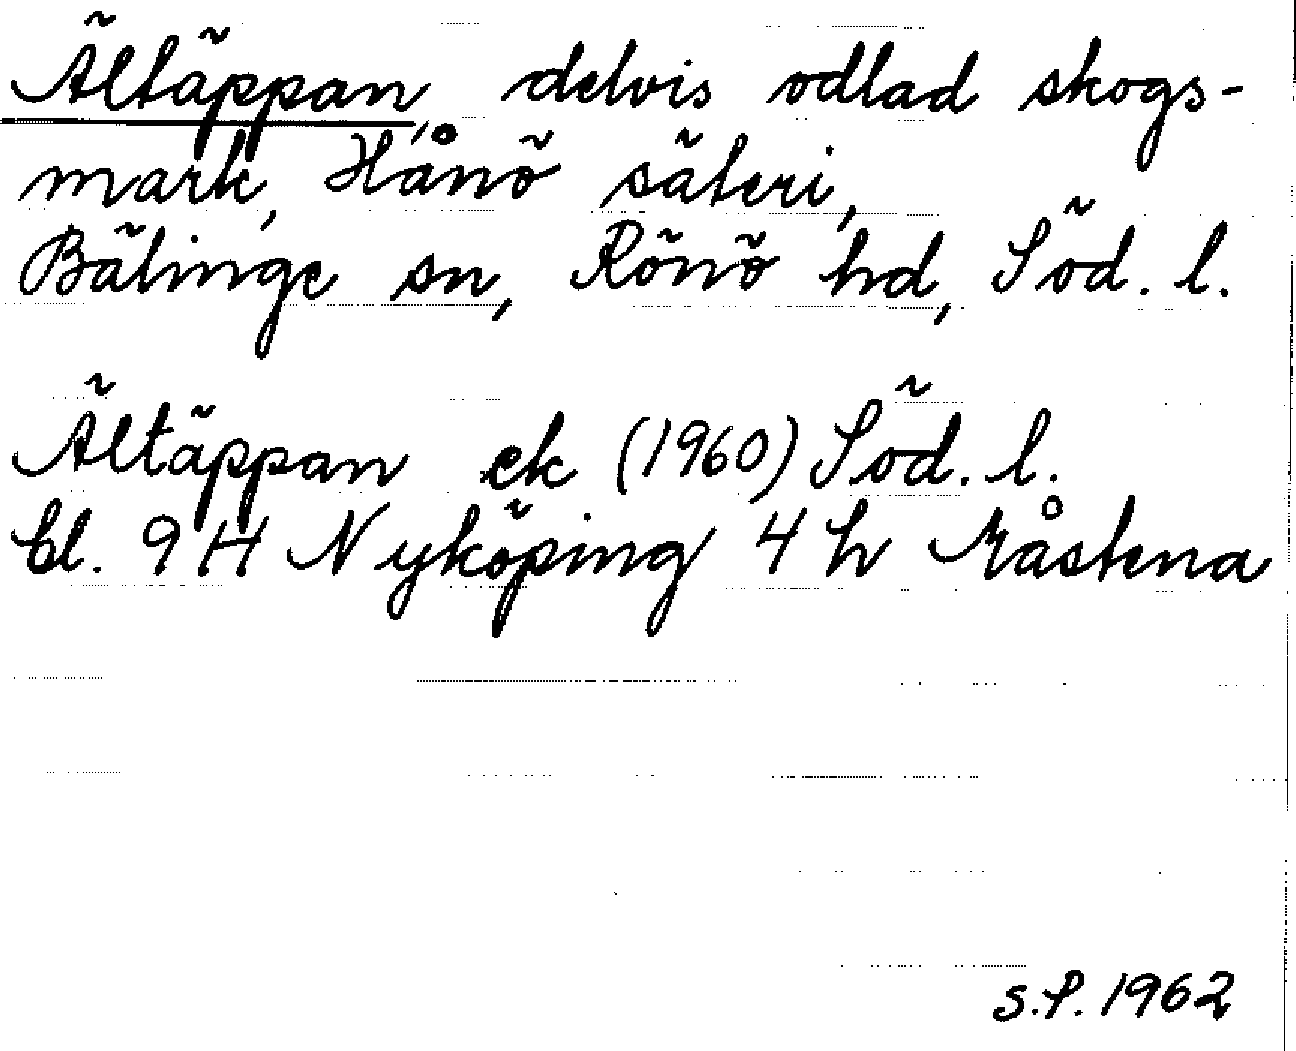 Ältäppan, delvis odlad skogs-
mark, Hånö säteri,
Bälinge sn, Rönö hd, Söd. l.
Ältäppan ek (1960) Söd. l.
bl. 9 H Nyköping 4 h Råstena
S.P. 1962